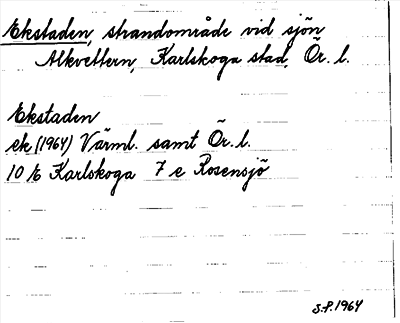 Ekstaden, strandområde vid sjön
Alkvettern, Karlskoga stad, Ör. l.
Ekstaden
ek (1964) Värml. samt Ör. l.
10 b Karlskoga 7 e Rosensjö
S.P. 1964